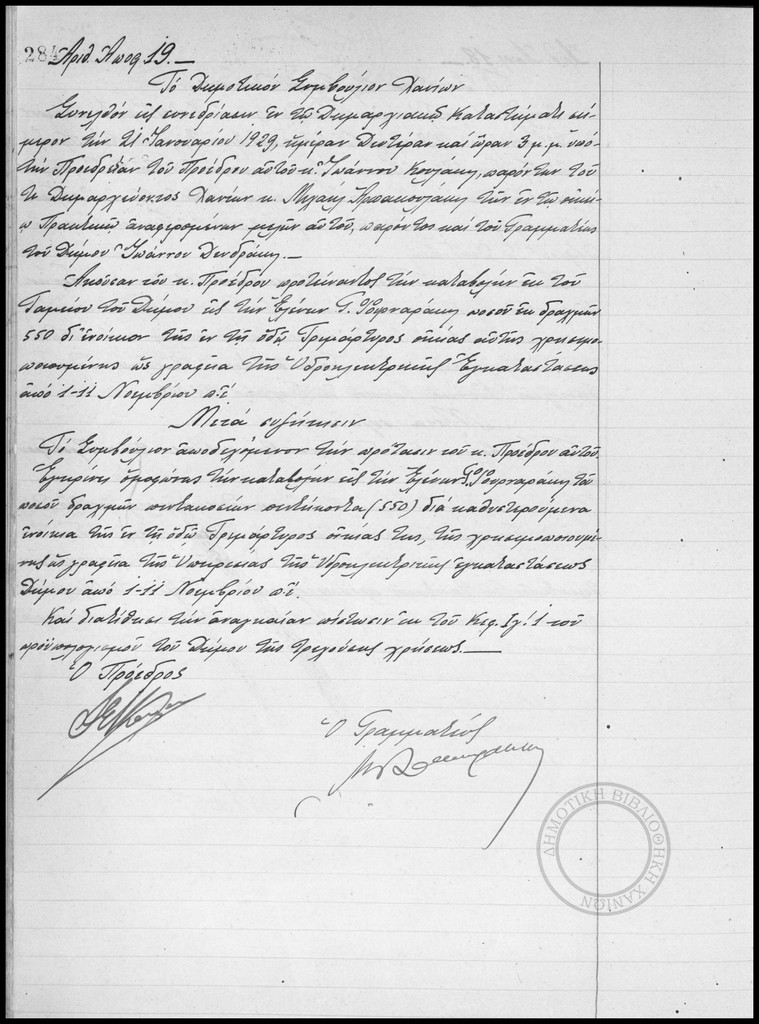 284 Αριθ. Αποφ 19. —
Τό Δημοτικόν Συμβούλιον Χανίων
Συνελθόν εἰς συνεδρίασιν ἐν τῷ Δημαρχιακῷ Καταστήματι σή-
μερον τήν 21 Ἰανουαρίου 1929, ἡμέραν Δευτέραν καί ὥραν 3 μ.μ. ὑπό
τήν Προεδρείαν τοῦ Προέδρου αὐτοῦ κ. Ἰωάννου, παρόντων τοῦ
κ Δημαρχεύοντος Χανίων κ. Μιχαήλ τῶν ἐν τῷ οἰκεί-
ῳ Πρακτικῷ ἀναφερομένων μελῶν αὐτοῦ, παρόντος καί τοῦ Γραμματέως
τοῦ Δήμου Ἰωάννου Δενδράκη. —
Ἀκούσαν τοῦ κ. Προέδρου προτείναντος τήν καταβολήν ἐκ τοῦ
Ταμείου τοῦ Δήμου εἰς τήν Ἑλένην Γ. ποσοῦ ἐκ δραχμῶν
550 δι' ἐνοίκιον τῆς ἐν τῇ ὁδῷ Τριμάρτυρος οἰκίας αὐτῆς χρησιμο-
ποιουμένης ὡς γραφεῖα τῆς Ὑδροηλεκτρικῆς Ἐγκαταστάσεως
ἀπό 1-11 Νοεμβρίου π.ἔ.
Μετά συζήτησιν
Τό Συμβούλιον ἀποδεχόμενον τήν πρότασιν τοῦ κ. Προέδρου αὐτοῦ.
Ἐγκρίνει ὁμοφώνως τήν καταβολήν εἰς τήν Ἑλένην Γ. τοῦ
ποσοῦ δραχμῶν πεντακοσίων πεντήκοντα (550) διά καθυστερούμενα
ἐνοίκια τῆς ἐν τῇ ὁδῷ Τριμάρτυρος οἰκίας της, τῆς χρησιμοποιουμέ-
νης ὡς γραφεῖα τῆς Ὑπηρεσίας τῆς Ὑδροηλεκτρικῆς ἐγκαταστάσεως
Δήμου ἀπό 1-11 Νοεμβρίου π.ἔ.
Καί διατίθησι τήν ἀναγκαίαν πίστωσιν ἐκ τοῦ Κεφ. Ιγ'. 1 τοῦ
προϋπολογισμοῦ τοῦ Δήμου τῆς τρεχούσης χρήσεως. —
Ὁ Πρόεδρος
Ὁ Γραμματεύς
ΔΗΜΟΤΙΚΗ ΒΙΒΛΙΟΘΗΚΗ ΧΑΝΙΩΝ